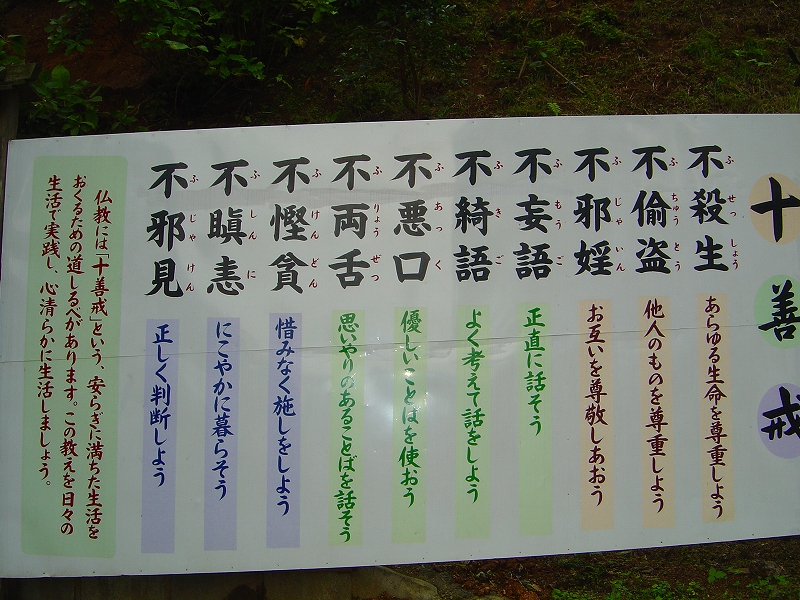 十善戒
不殺生
ふせっしょう
あらゆる生命を尊重しよう
不偸盗
ふちゅうとう
他人のものを尊重しよう
不邪婬
ふじゃいん
お互いを尊敬しあおう
不妄語
ふもうご
正直に話そう
不綺語
ふきご
よく考えて話をしよう
不悪口
ふあっく
優しいことばを使おう
不両舌
ふりょうぜつ
思いやりのあることばを話そう
不慳貪
ふけんどん
惜みなく施しをしよう
不瞋恚
ふしんに
にこやかに暮らそう
不邪見
ふじゃけん
正しく判断しよう
仏教には「十善戒」という、安らぎに満ちた生活を
おくるための道しるべがあります。この教えを日々の
生活で実践し、心清らかに生活しましょう。